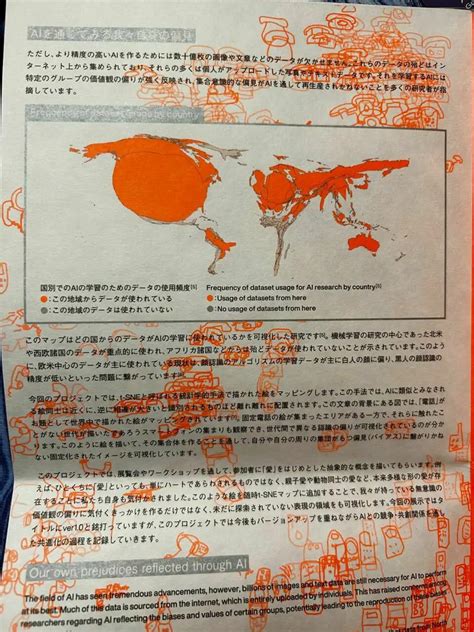 AIを通してみる我々自身の偏見
ただし、より精度の高いAIを作るためには数十億枚の画像や文章などのデータが欠かせません。これらのデータの殆どはイン
ターネット上から集められており、それらの多くは個人がアップロードした写真やテキストデータです。それを学習するAIには
特定のグループの価値観の偏りが強く反映され、集合意識的な偏見がAIを通して再生産されかねないことを多くの研究者が指
摘しています。
by country
国別でのAIの学習のためのデータの使用頻度[5]
●:この地域からデータが使われている
●:この地域のデータは使われていない
Frequency of dataset usage for AI research by country[5]
●:Usage of datasets from here
●:No usage of datasets from here
このマップはどの国からのデータがAIの学習に使われているかを可視化した研究です[5]。機械学習の研究の中心であった北米
や西欧諸国のデータが重点的に使われ、アフリカ諸国などからは殆どデータが使われていないことが示されています。このよう
に、欧米中心のデータが主に使われている現状は、顔認識のアルゴリズムの学習データが主に白人の顔に偏り、黒人の顔認識の
精度が低いといった問題に繋がっています
今回のプロジェクトでは、t-SNEと呼ばれる統計学的手法で描かれた絵をマッピングします。この手法では、AIに類似とみなされ
る絵同士は近くに、逆に
お題として世界中で描かれた絵がマッピングされています
とがない世代が描いたであろうスマートフォンの集まりも観察でき、世代間で異なる認識の偏りが可視化されているのが分か
ります。このように絵を描いて、その集合体を作ることを通して、自分や自分の周りの集団がもつ偏見(バイアス)に繋がりかね
ない固定化されたイメージを可視化しています。
このプロジェクトでは、展覧会やワークショップを通して、参加者に「愛」をはじめとした抽象的な概念を描いてもらいます。例
えば、ひとくちに「愛」といっても、単にハートであらわされるものではなく、親子愛や動物同士の愛など、本来多様な別の愛が存
在することに私たち自身も気付かされました。このような絵を随時t-SNEマップに追加することで、我々が持っている無意識の
価値観の偏りに気付くきっかけを作るだけではなく、未だに探索されていない表現の領域をも可視化します。今回の展示ではタ
イトルにver1.0と銘打っていますが、このプロジェクトでは今後もバージョンアップを重ねながらAIとの競争・共創関係を通し
た共進化の過程を記録していきます。
Our own prejudices reflected through AI
The field of AI has seen tremendous advancements, however, billions of images and text data are still necessary for AI to perform
at its best. Much of this data is sourced from the internet, which is entirely uploaded by individuals. This has raised concerns among
researchers regarding AI reflecting the biases and values of certain groups, potentially leading to the reproduction of these biases
from North